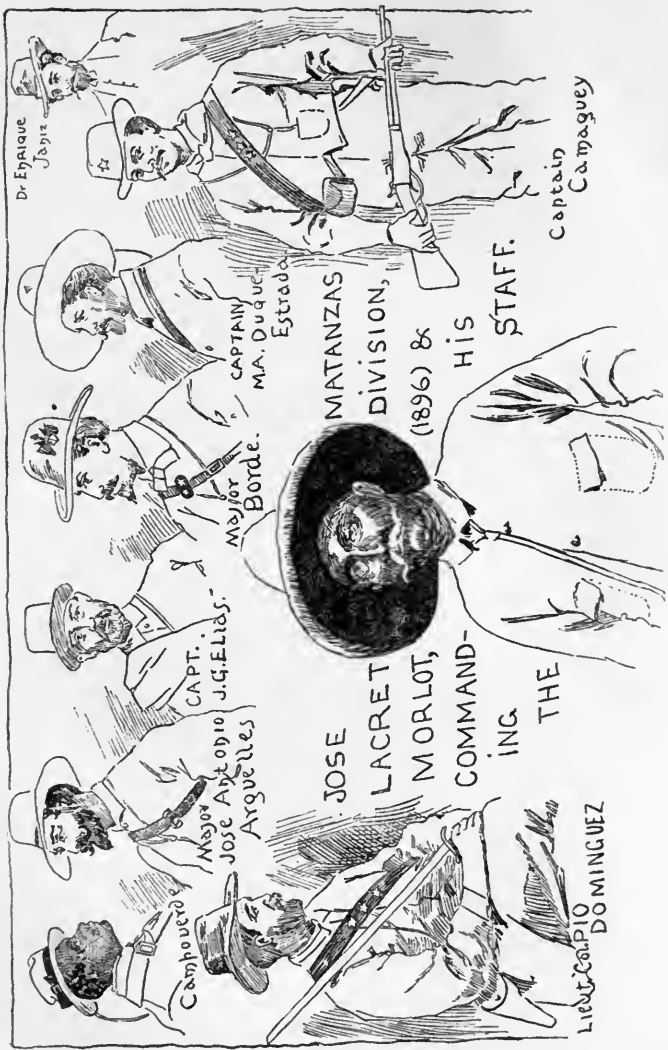 Campoverde
Major
José Antonio
Arguelles
CAPT.
J.G. ELIAS.-
Major
Borde.
CAPTAIN
M.A. Duque-
Estrada
Dr Enrique
Janiz
Lieut. Col. PIO
DOMINGUEZ
JOSE
LACRET
MORLOT,
COMMAND-
ING
THE
MATANZAS
DIVISION,
(1896) &
HIS
STAFF.
Captain
Camaguey